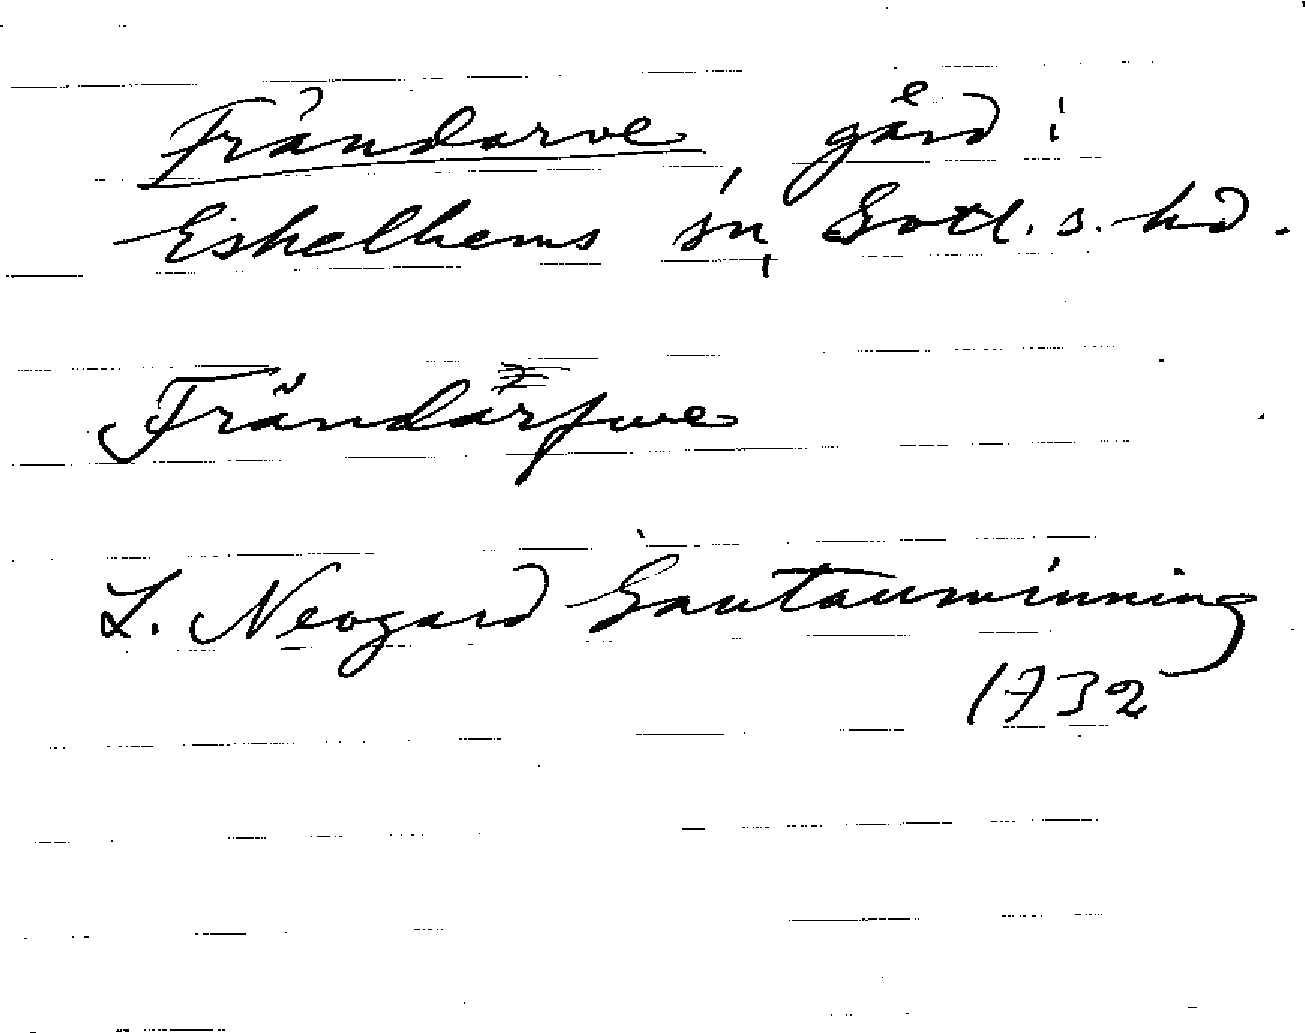 Frändarve, gård i
Eskelhems sn, Gotl. s. hd.
Frändarfwe
L. Neogard Gautauminning
1732